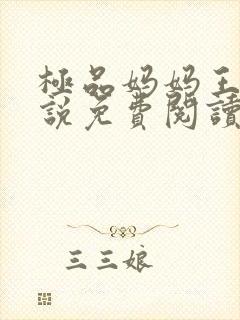 極品妈妈王
說免費閱讀
三三娘